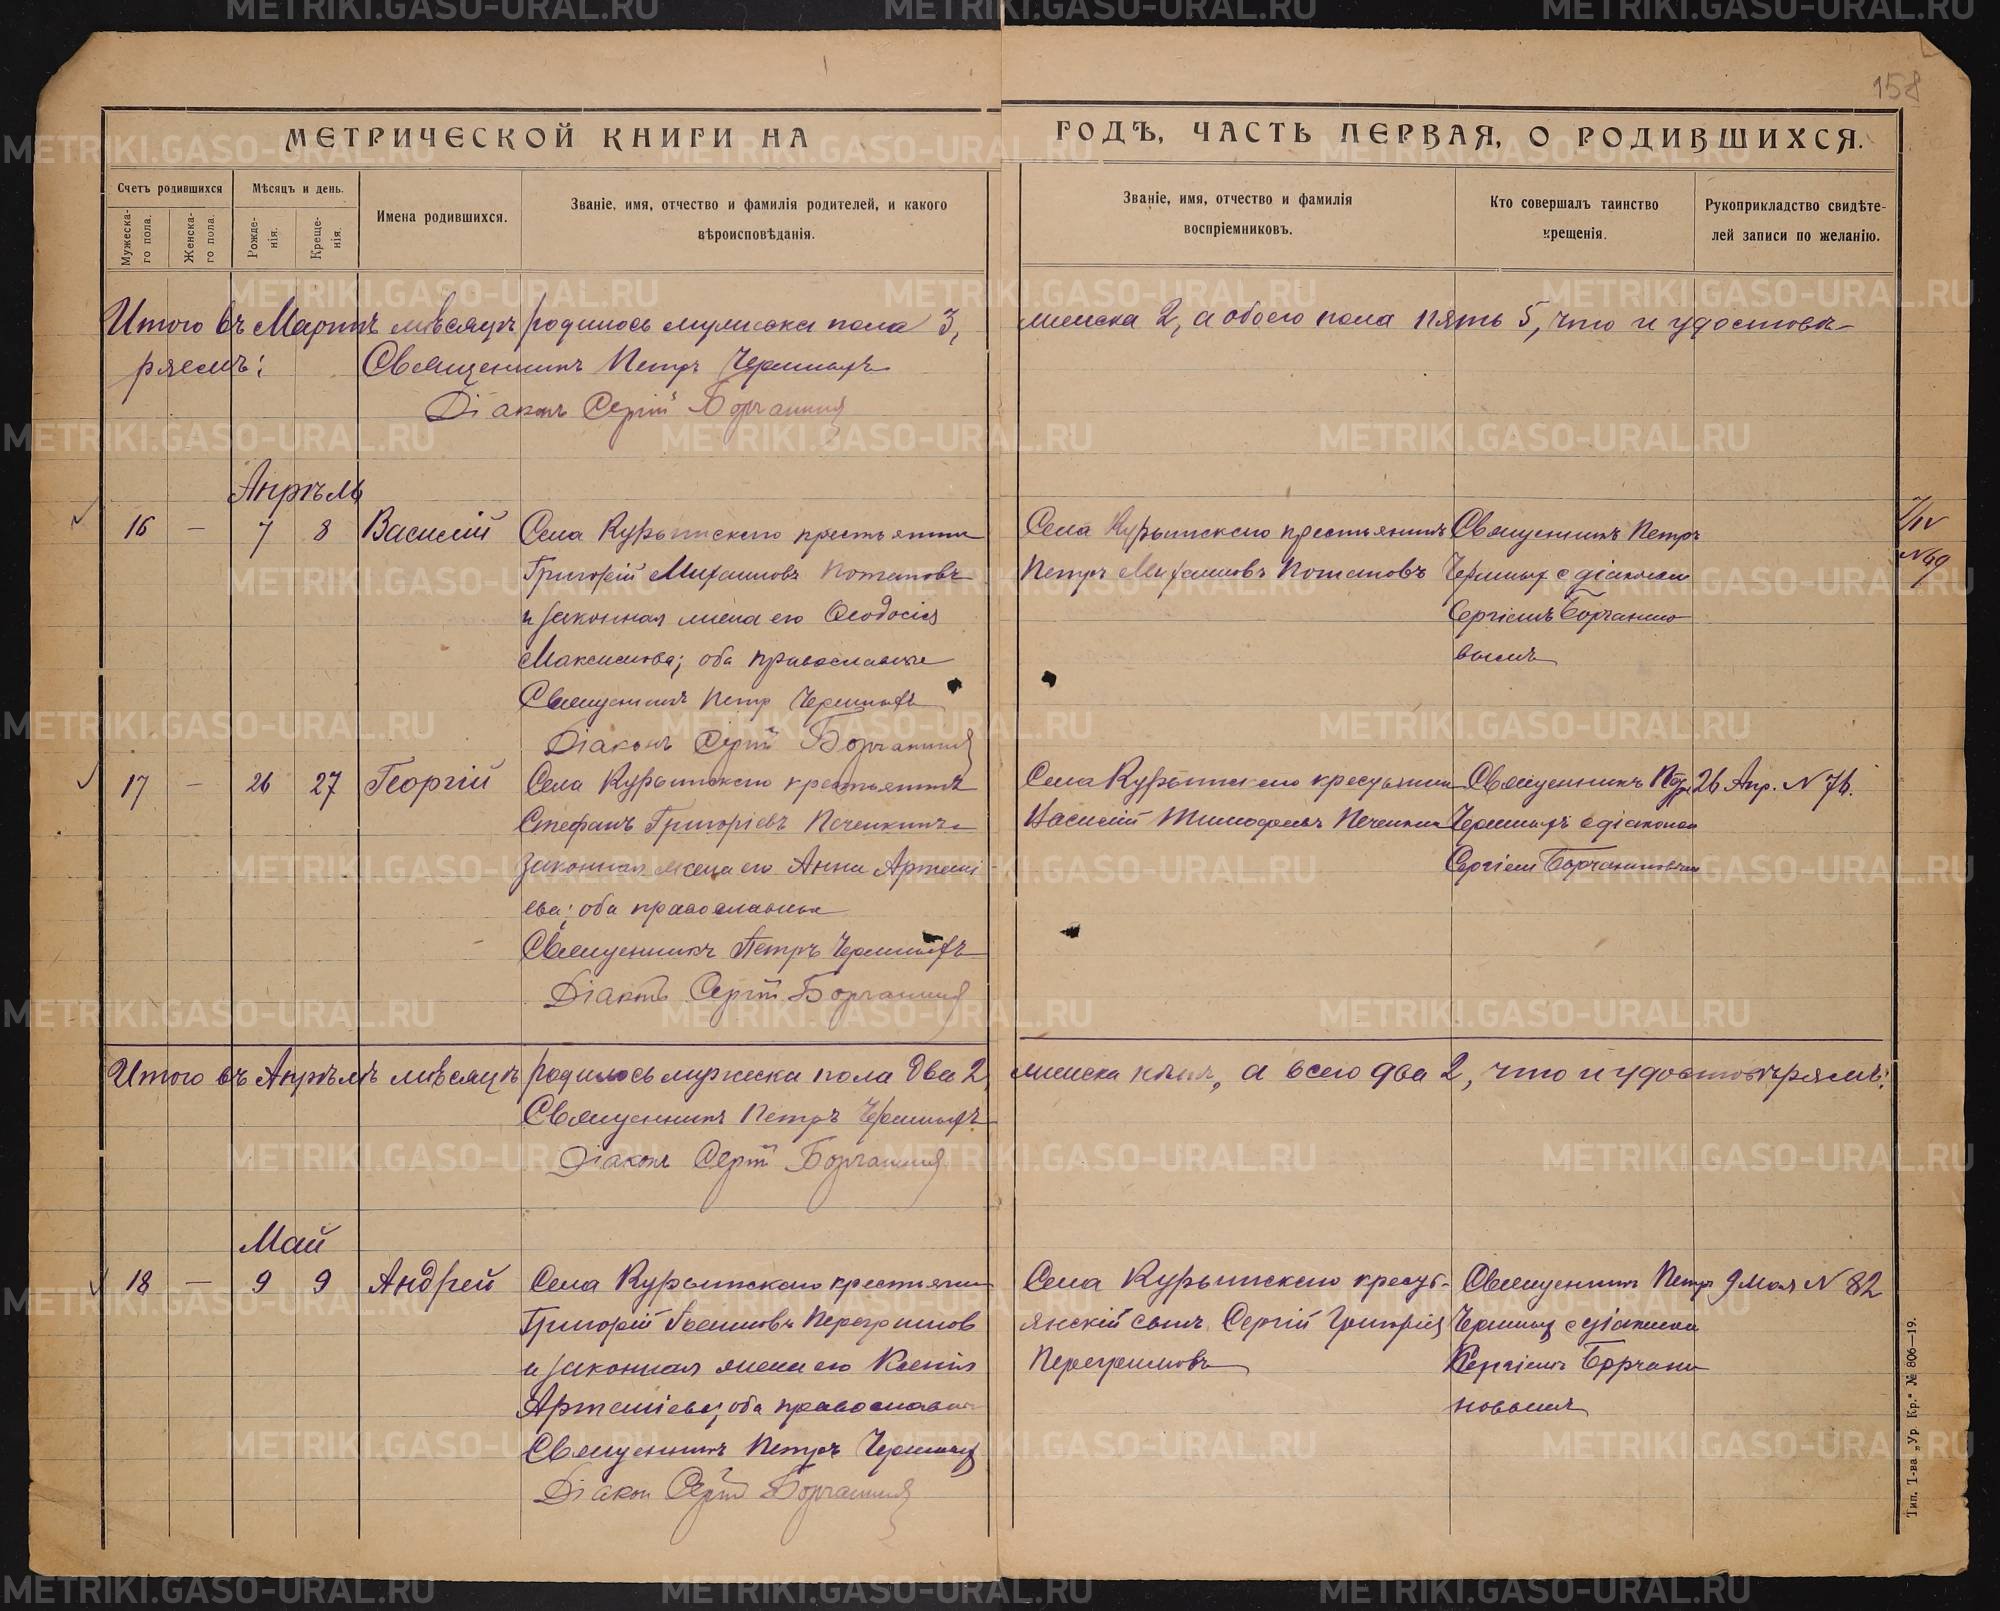 158
МЕТРИЧЕСКОЙ КНИГИ НА
ГОДЪ, ЧАСТЬ ПЕРВАЯ, О РОДИВШИХСЯ.
Счетъ родившихся
Мужеска-
го пола.
Женска-
го пола.
Мѣсяцъ и день.
Рожде-
нія.
Креще-
нія.
Имена родившихся.
Званіе, имя, отчество и фамилія родителей, и какого
вѣроисповѣданія.
Званіе, имя, отчество и фамилія
воспріемниковъ.
Кто совершалъ таинство
крещенія.
Рукоприкладство свидѣте-
лей записи по желанію.
Итого въ Мартѣ мѣсяцѣ родилось мужеска пола 3,
женска 2, а обоего пола пять 5, что и удостовѣ-
ряемъ:
Священникъ Петръ Черныхъ
Діаконъ Сергій Борчанинов
Апрѣль
16 — 7 8 Василій
Села Курьинскаго крестьянин
Григорій Михаиловъ Потаповъ
и законная жена его Ѳеодосія
Максимова; оба православные
Священникъ Петр Черныхъ
Діаконъ Сергій Борчанинов
Села Курьинскаго крестьянинъ
Петръ Михаиловъ Потаповъ
Священникъ Петръ
Черныхъ с діакономъ
Сергіемъ Борчанино
вымъ
№ 49
17 — 26 27 Георгій
Села Курьинскаго крестьянинъ
Стефанъ Григорьевъ Печенкинъ
законная жена его Анна Артемі
ева; оба православные
Священникъ Петръ Черныхъ
Діаконъ Сергій Борчанинов
Села Курьинскаго крестьянин
Василій Тимофеевъ Печенкин
Священникъ Петр
Черныхъ с діаконом
Сергіем Борчаниновым
26 Апр. № 76.
Итого въ Апрѣлѣ мѣсяцѣ родилось мужеска пола два 2,
женска нѣтъ, а всего два 2, что и удостовѣряемъ:
Священникъ Петръ Черныхъ
Діаконъ Сергій Борчанинов
Май
18 — 9 9 Андрей
Села Курьинскаго крестьянин
Григорій Перегримов
и законная жена его Ксенія
Артеміева; оба православн
Священникъ Петръ Черныхъ
Діакон Сергій Борчанинов
Села Курьинскаго кресть-
янскій сынъ Сергій Григоріев
Перегримовъ
Священникъ Петр
Черныхъ с діаконом
Сергіемъ Борчани
новымъ
9 мая № 82
Тип. Т-ва „Ур. Кр.“ № 806—19.
METRIKI.GASO-URAL.RU